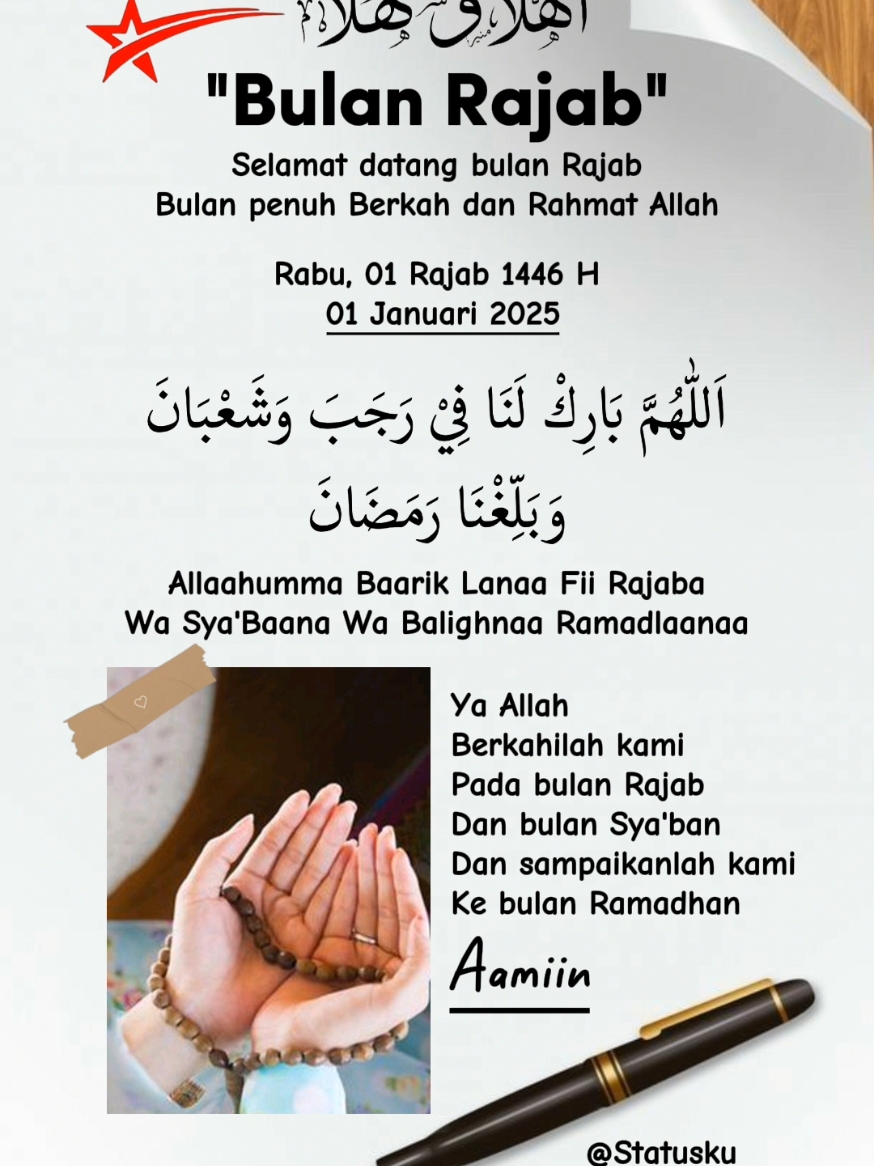 أهلا و سهلا
"Bulan Rajab"
Selamat datang bulan Rajab
Bulan penuh Berkah dan Rahmat Allah
Rabu, 01 Rajab 1446 H
01 Januari 2025
اَللّٰهُمَّ بَارِكْ لَنَا فِيْ رَجَبَ وَشَعْبَانَ
وَبَلِّغْنَا رَمَضَانَ
Allaahumma Baarik Lanaa Fii Rajaba
Wa Sya'Baana Wa Balighnaa Ramadlaanaa
Ya Allah
Berkahilah kami
Pada bulan Rajab
Dan bulan Sya'ban
Dan sampaikanlah kami
Ke bulan Ramadhan
Aamiin
@Statusku